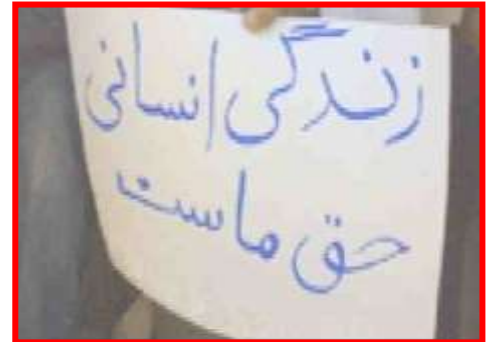 زندگی انسانی
حق ماست